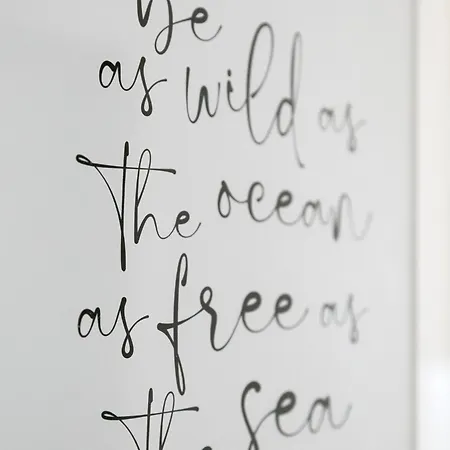 Be
as wild as
The ocean
as free as
The sea